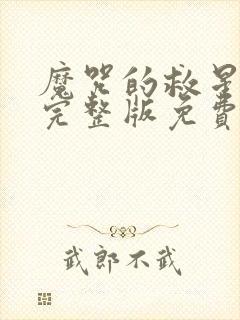 魔咒的救星
完整版免費
武郎不武